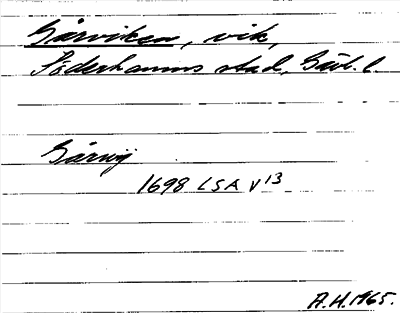 Gårviken, vik,
Söderhamns stad, Gävl. l.
Gårwij
1698 LSA V13
A.H. 1965.